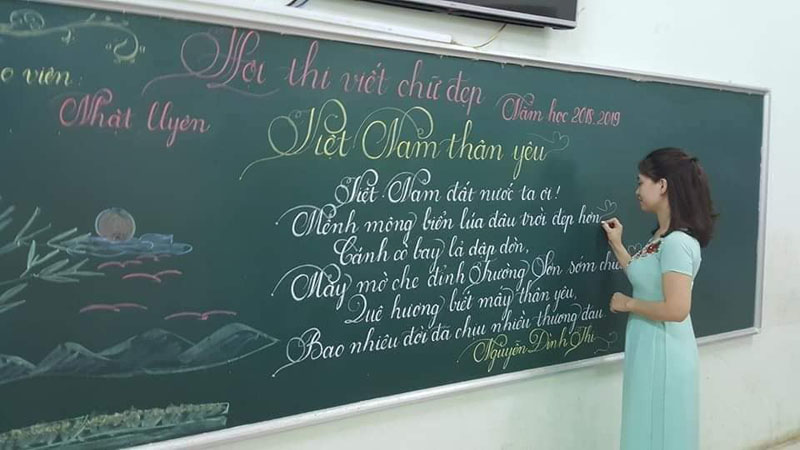 Hội thi viết chữ đẹp
Năm học 2018-2019
o viên:
Nhật Uyên
Việt Nam thân yêu
Việt Nam đất nước ta ơi!
Mênh mông biển lúa đâu trời đẹp hơn
Cánh cò bay lả dập dờn,
Mây mờ che đỉnh Trường Sơn sớm chiều
Quê hương biết mấy thân yêu,
Bao nhiêu đời đã chịu nhiều thương đau
Nguyễn Đình Thi